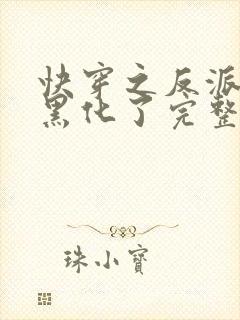 快穿之反派
黑化了完整
珠小寶